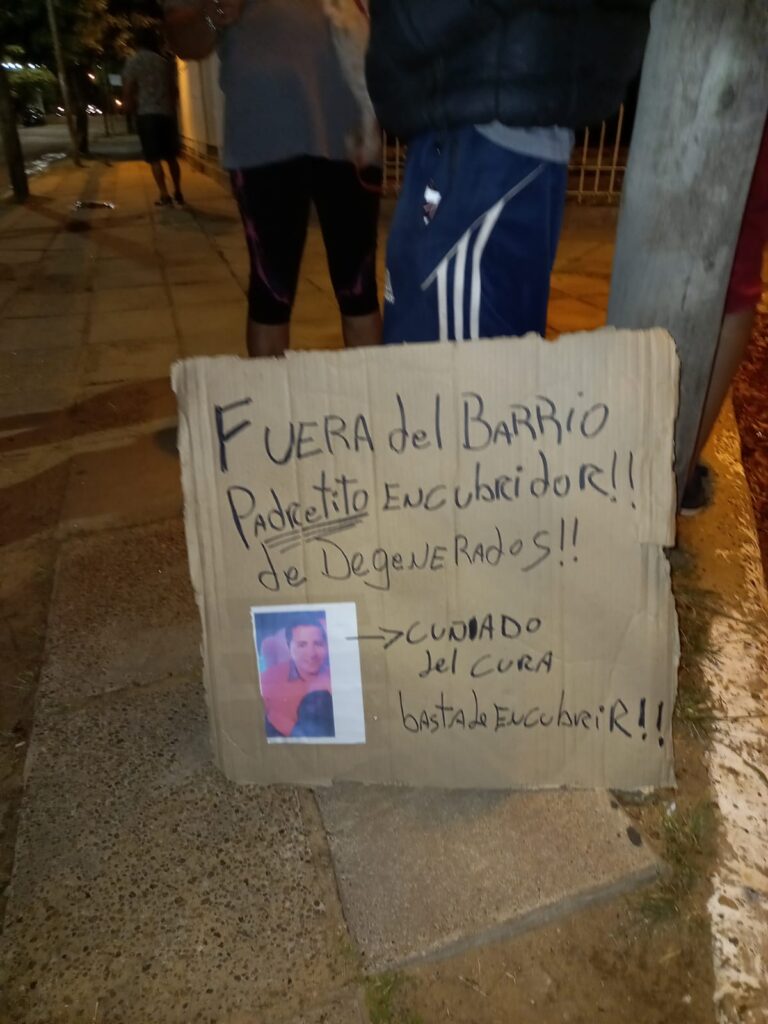 FUERA del BARRIO
Padretito ENCUbRidoR!!
de DegeNERAdos!!
CUNIADO
del CURA
basta de ENCUbriR!!